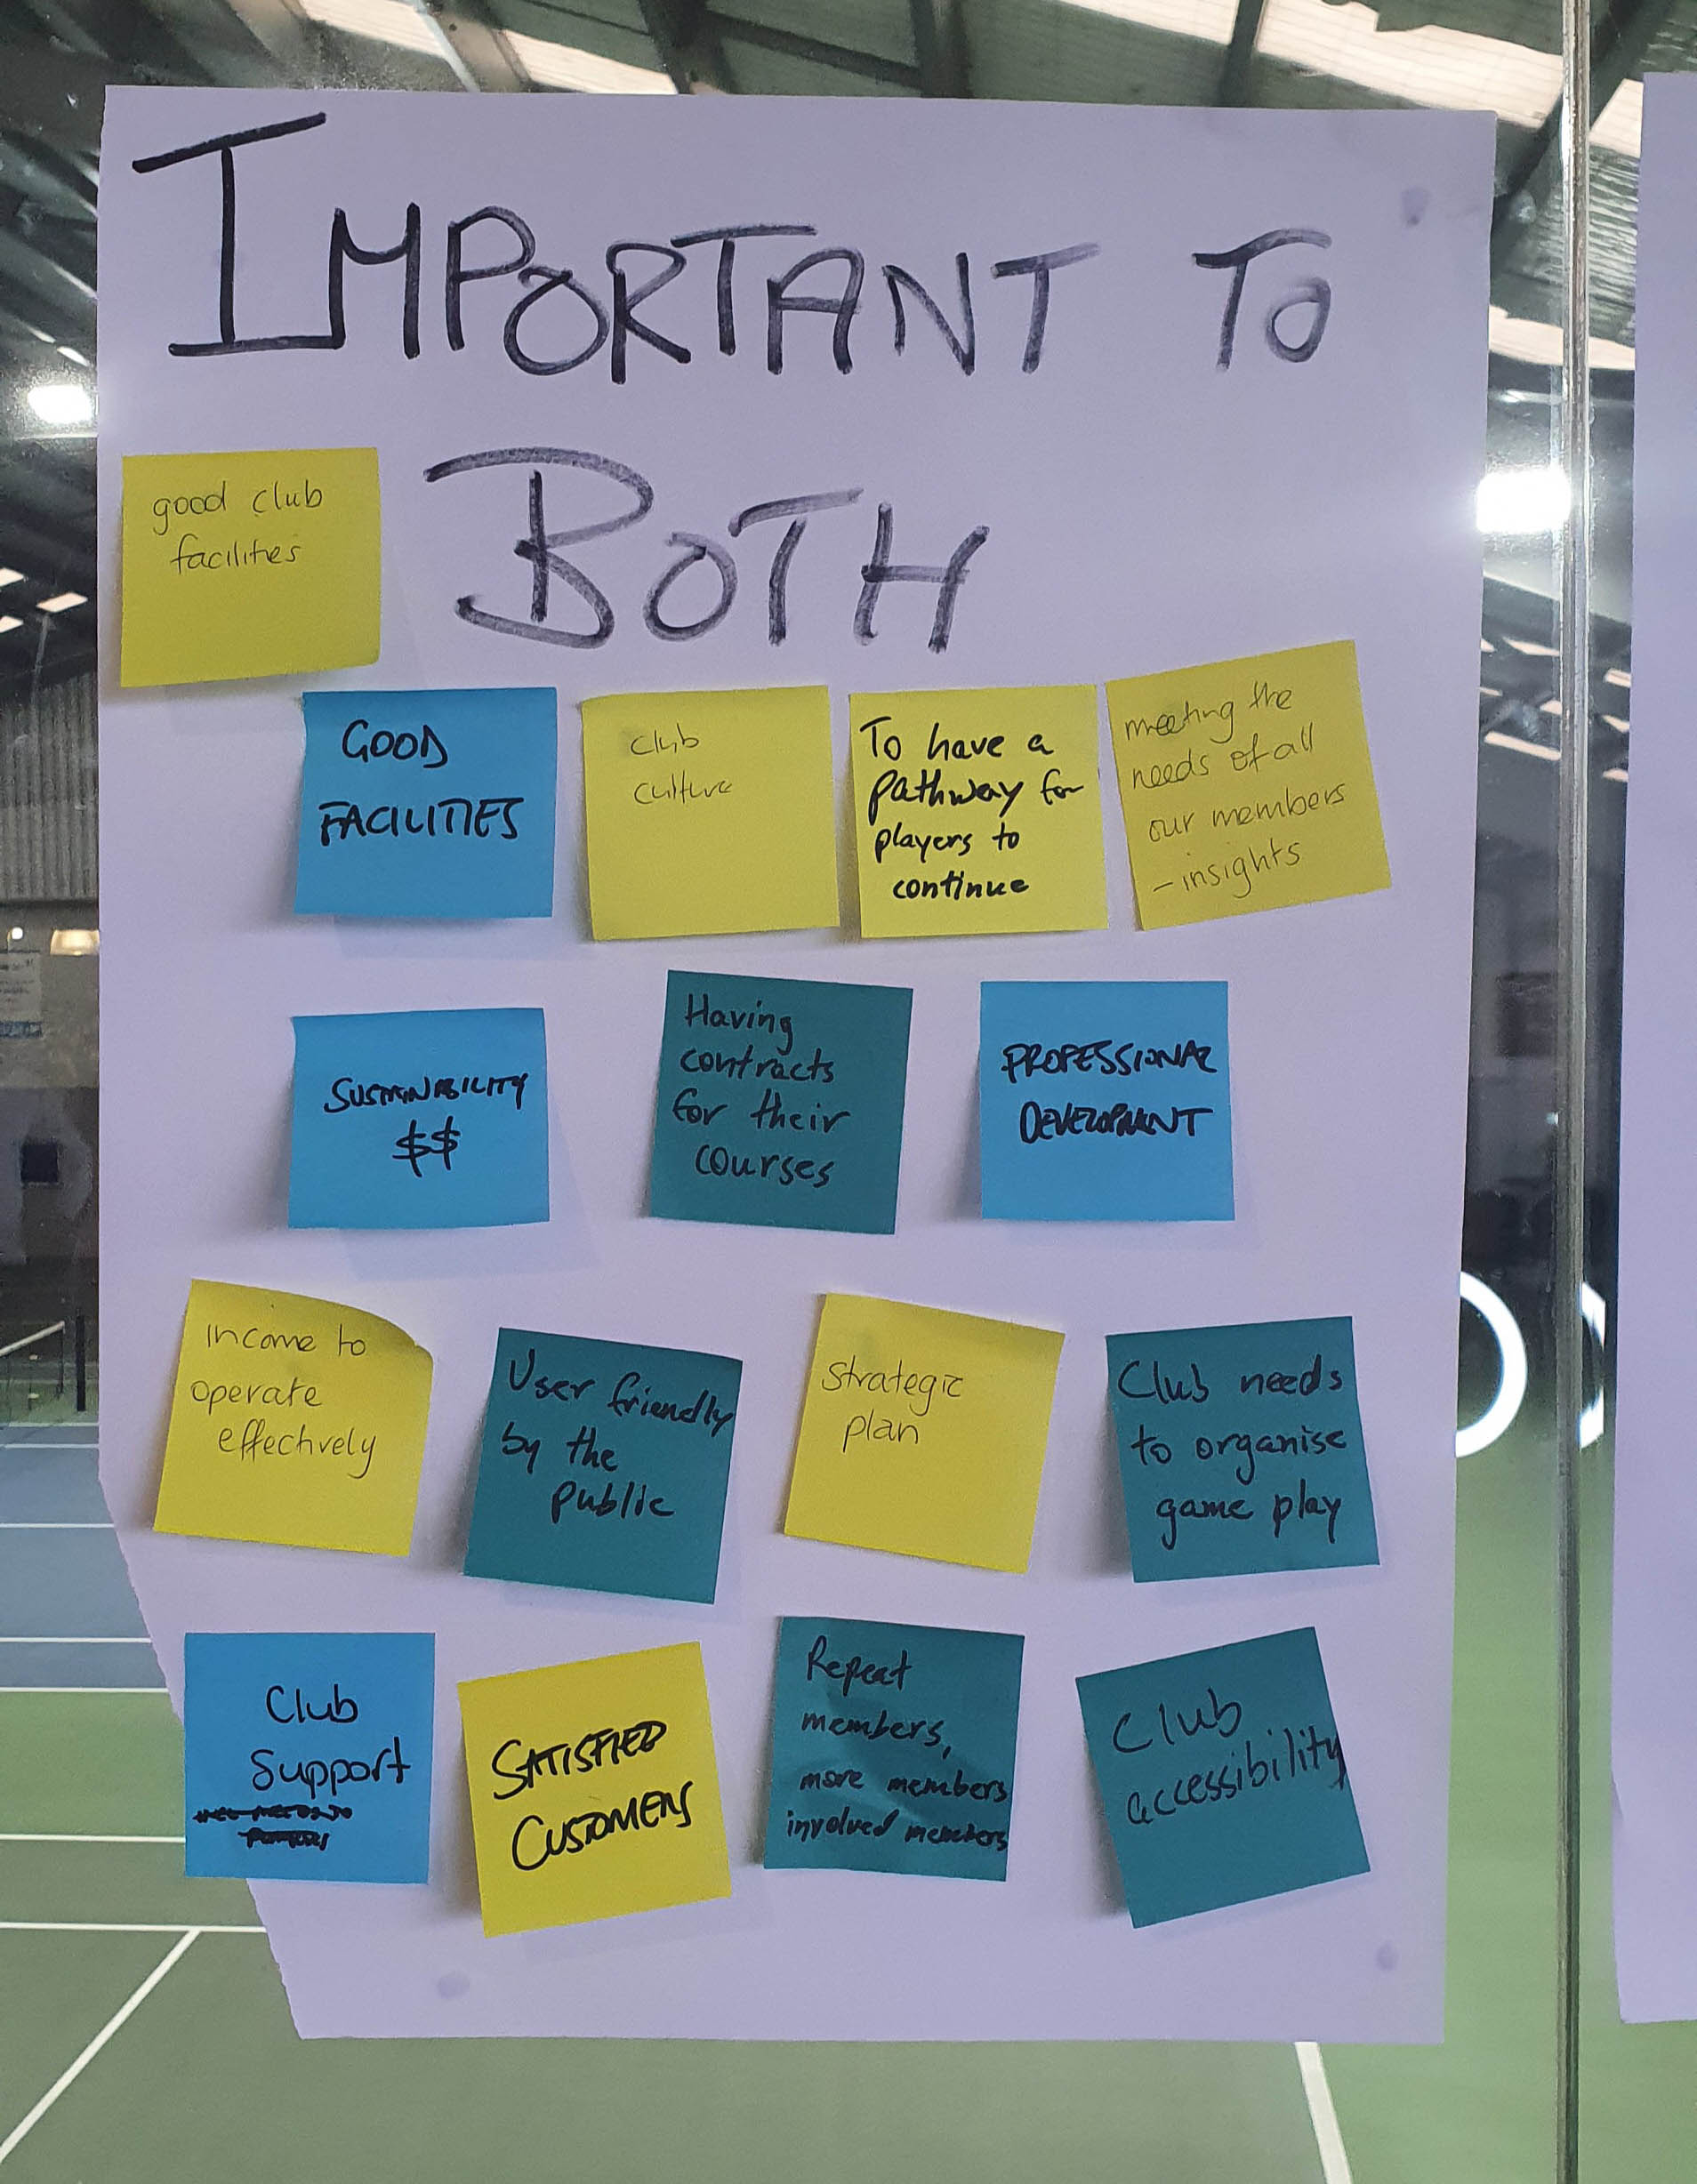 IMPORTANT TO
BOTH
good club
facilities
GOOD
FACILITIES
club
culture
To have a
pathway for
players to
continue
meeting the
needs of all
our members
- insights
SUSTAINABILITY
$$
Having
contracts
for their
courses
PROFESSIONAL
DEVELOPMENT
income to
operate
effectively
User friendly
by the
public
Strategic
plan
Club needs
to organise
game play
Club
Support
SATISFIED
CUSTOMERS
Repeat
members,
more members
involved members
Club
accessibility